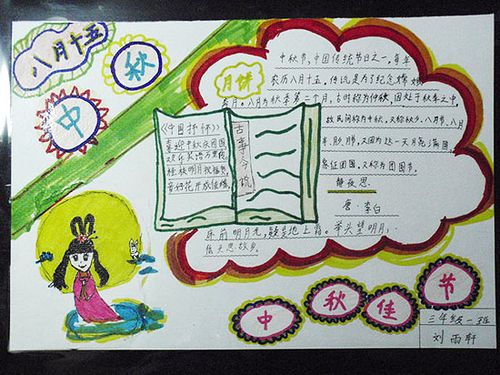 八月十五
中秋
中秋节,中国传统节日之一,每年
农历八月十五,传说是为了纪念嫦娥
奔月。八月为秋季第二个月,古时称为仲秋,因处于秋季之中,
故民间称为中秋,又称秋夕、八月节、八月
月饼
《中国抒怀》
喜迎中秋庆团圆
古 今
静夜思
唐·李白
床前明月光,疑是地上霜。举头望明月,
低头思故乡
象征团圆,又称为团圆节。
中秋佳节
三年级一班
刘雨轩